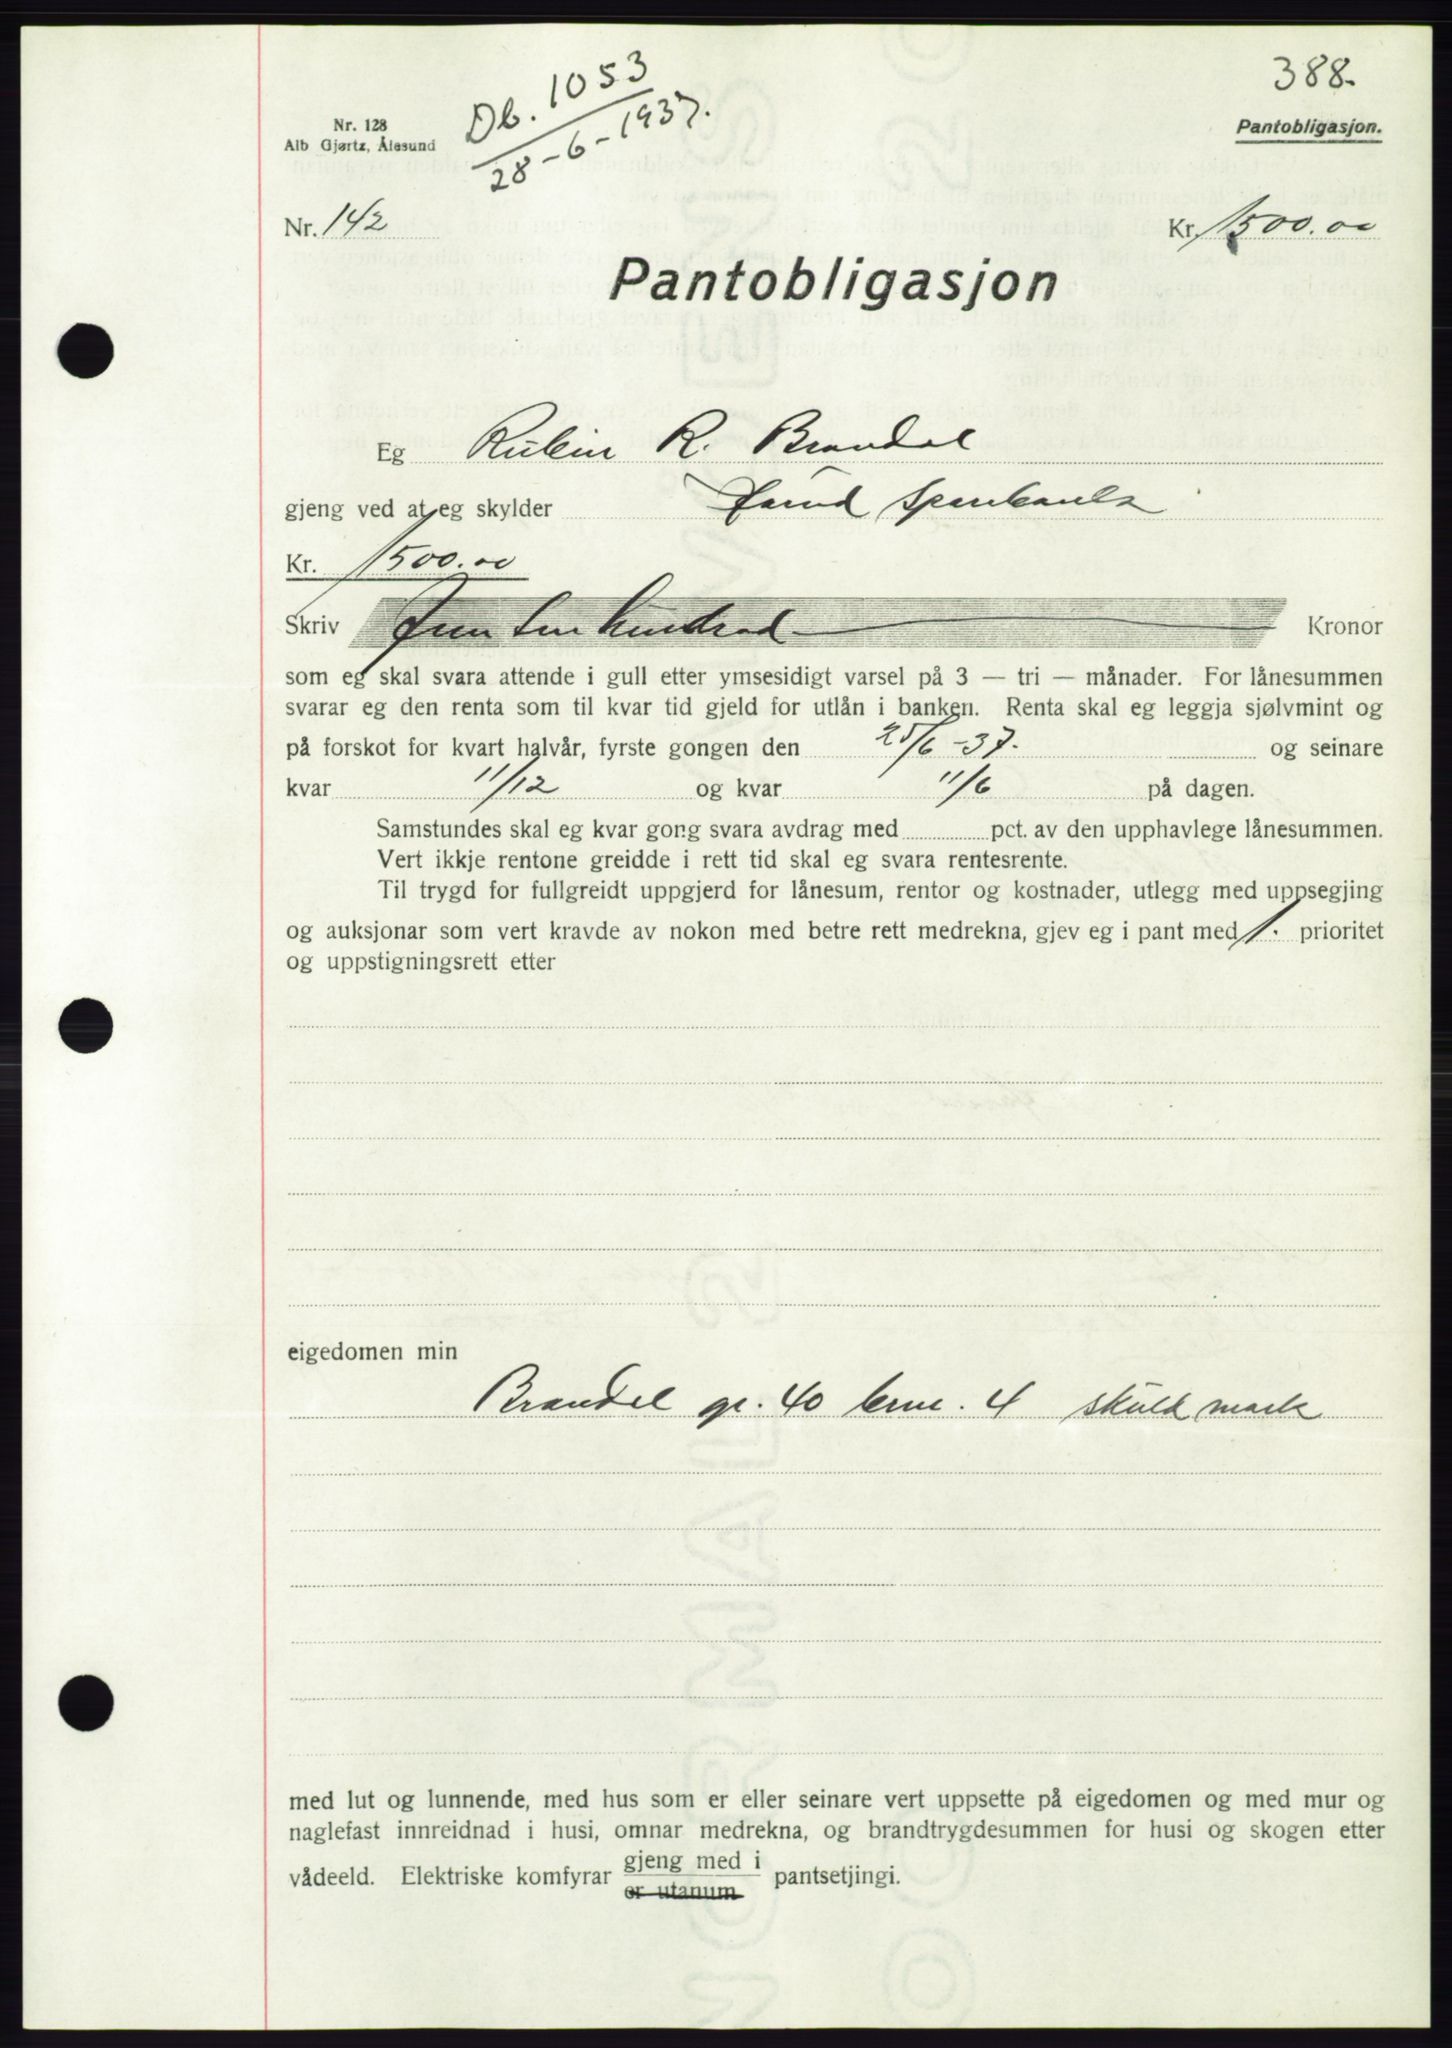 388.
Db. 1053
28-6-1937.
Nr. 128
Alb Gjørtz, Ålesund
Pantobligasjon.
Nr. 142
Kr. 1500.00
Pantobligasjon
Eg Rubin R. Brandal
gjeng ved at eg skylder Hareid Sparebank
Kr. 1500.00
Skriv Femten hundrad Kronor
som eg skal svara attende i gull etter ymsesidigt varsel på 3 — tri — månader. For lånesummen
svarar eg den renta som til kvar tid gjeld for utlån i banken. Renta skal eg leggja sjølvmint og
på forskot for kvart halvår, fyrste gongen den 25/6-37. og seinare
kvar 11/12 og kvar 11/6 på dagen.
Samstundes skal eg kvar gong svara avdrag med pct. av den upphavlege lånesummen.
Vert ikkje rentone greidde i rett tid skal eg svara rentesrente.
Til trygd for fullgreidt uppgjerd for lånesum, rentor og kostnader, utlegg med uppsegjing
og auksjonar som vert kravde av nokon med betre rett medrekna, gjev eg i pant med 1. prioritet
og uppstigningsrett etter
eigedomen min
Brandal gr. 40 brnr. 4 skuld mark
med lut og lunnende, med hus som er eller seinare vert uppsette på eigedomen og med mur og
naglefast innreidnad i husi, omnar medrekna, og brandtrygdesummen for husi og skogen etter
vådeeld. Elektriske komfyrar gjeng med i pantsetjingi.
er utanum